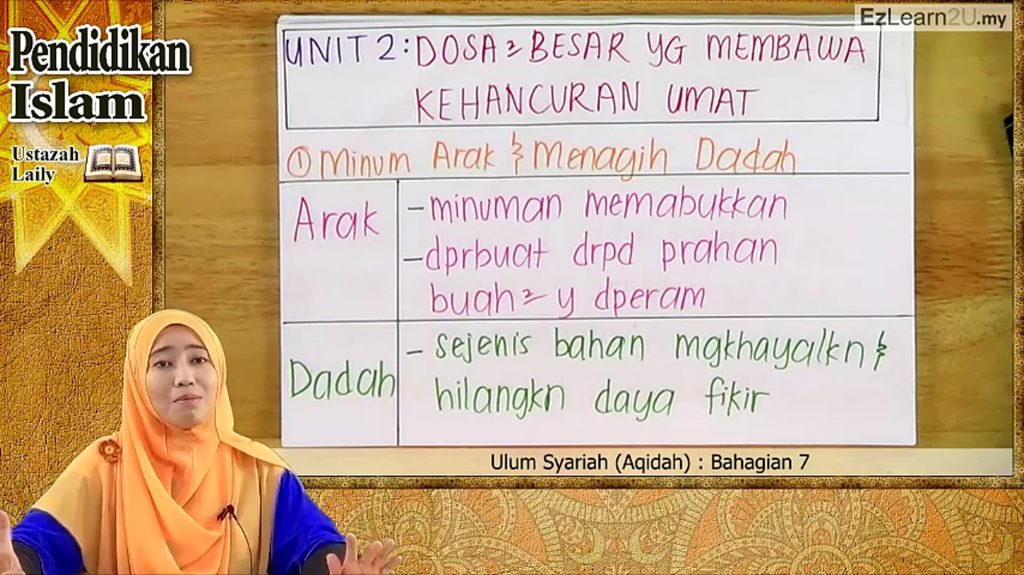 EzLearn2U.my
Pendidikan
Islam
Ustazah
Laily
UNIT 2: DOSA2 BESAR YG MEMBAWA
KEHANCURAN UMAT
① Minum Arak & Menagih Dadah
Arak
- minuman memabukkan
- dprbuat drpd prahan
buah2 y dperam
Dadah
- sejenis bahan mgkhayalkn &
hilangkn daya fikir
Ulum Syariah (Aqidah) : Bahagian 7